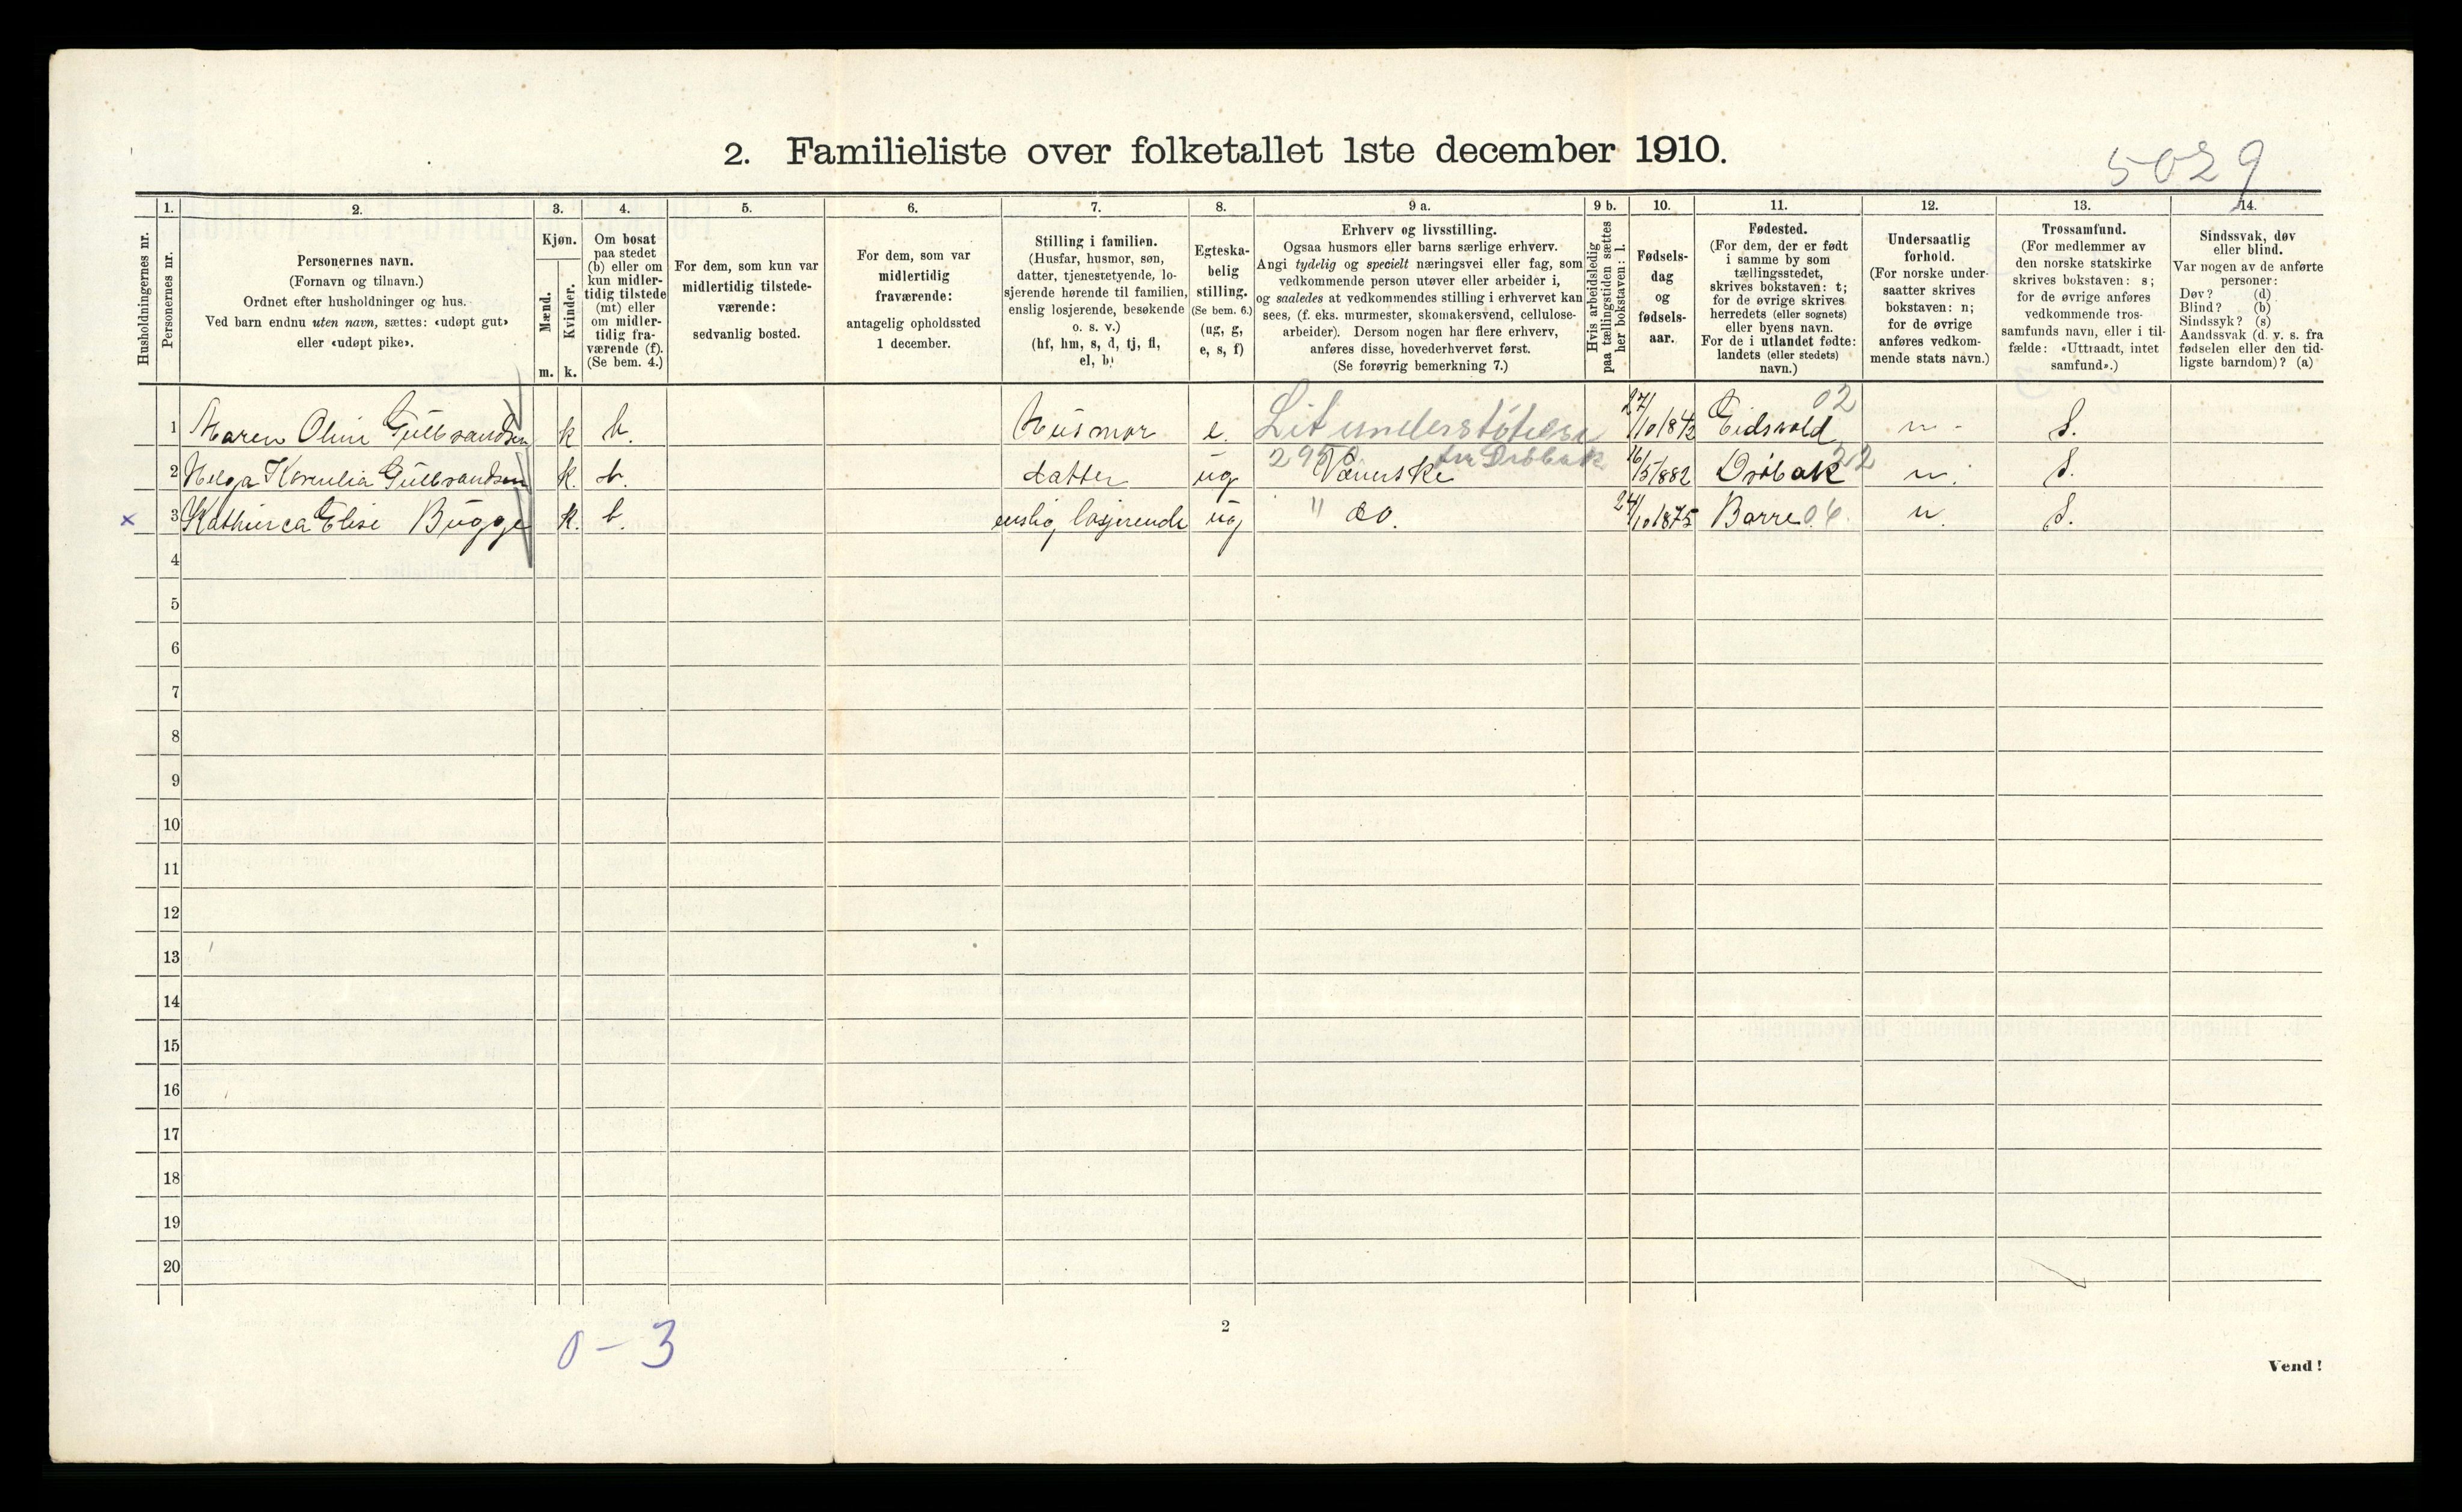 2. Familieliste over folketallet 1ste december 1910.
5029
1. 2. 3. 4. 5. 6. 7. 8. 9 a. 9 b. 10. 11. 12. 13. 14.
Husholdningernes nr.
Personernes nr.
Personernes navn.
(Fornavn og tilnavn.)
Ordnet efter husholdninger og hus.
Ved barn endnu uten navn, sættes: «udøpt gut»
eller «udøpt pike».
Kjøn.
Mænd.
Kvinder.
m. k.
Om bosat
paa stedet
(b) eller om
kun midler-
tidig tilstede
(mt) eller
om midler-
tidig fra-
værende (f).
(Se bem. 4.)
For dem, som kun var
midlertidig tilstede-
værende:
sedvanlig bosted.
For dem, som var
midlertidig
fraværende:
antagelig opholdssted
1 december.
Stilling i familien.
(Husfar, husmor, søn,
datter, tjenestetyende, lo-
sjerende hørende til familien,
enslig losjerende, besøkende
o. s. v.)
(hf, hm, s, d, tj, fl,
el, b)
Egteska-
belig
stilling.
(Se bem. 6.)
(ug, g,
e, s, f)
Erhverv og livsstilling.
Ogsaa husmors eller barns særlige erhverv.
Angi tydelig og specielt næringsvei eller fag, som
vedkommende person utøver eller arbeider i,
og saaledes at vedkommendes stilling i erhvervet kan
sees, (f. eks. murmester, skomakersvend, cellulose-
arbeider). Dersom nogen har flere erhverv,
anføres disse, hovederhvervet først.
(Se forøvrig bemerkning 7.)
Hvis arbeidsledig
paa tællingstiden sættes
her bokstaven: l.
Fødsels-
dag
og
fødsels-
aar.
Fødested.
(For dem, der er født
i samme by som
tællingsstedet,
skrives bokstaven: t;
for de øvrige skrives
herredets (eller sognets)
eller byens navn.
For de i utlandet fødte:
landets (eller stedets)
navn.)
Undersaatlig
forhold.
(For norske under-
saatter skrives
bokstaven: n;
for de øvrige
anføres vedkom-
mende stats navn.)
Trossamfund.
(For medlemmer av
den norske statskirke
skrives bokstaven: s;
for de øvrige anføres
vedkommende tros-
samfunds navn, eller i til-
fælde: «Uttraadt, intet
samfund».)
Sindssvak, døv
eller blind.
Var nogen av de anførte
personer:
Døv? (d)
Blind? (b)
Sindssyk? (s)
Aandssvak (d. v. s. fra
fødselen eller den tid-
ligste barndom)? (a)
1 Maren Olini Gulbrandsen k b. Husmor e. Litunderstøtelse fra Drøbak 27/10 1842 Eidsvold 02 n - S.
2 Helga Kornelia Gulbrandsen k. b. datter ug Væverske 16/5 1882 Drøbak 22 n. S.
x 3 Kathinca Elise Bugge k. b. enslig losjerende ug " do. 24/10 1875 Borre 06. n. S.
4
5
6
7
8
9
10
11
12
13
14
15
16
17
18
19
20
0 - 3
2
Vend!